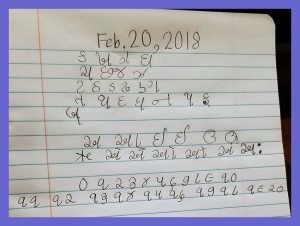 Feb. 20, 2018
ક ખ ગ ઘ
ચ છ જ ઝ
ટ ઠ ડ ઢ ણ
ત થ દ ધ ન પ ફ
બ
અ આ ઇ ઈ ઉ ઊ
એ ઐ ઓ ઔ અં અઃ
૦ ૧ ૨ ૩ ૪ ૫ ૬ ૭ ૮ ૯ ૧૦
૧૧ ૧૨ ૧૩ ૧૪ ૧૫ ૧૬ ૧૭ ૧૮ ૧૯ ૨૦